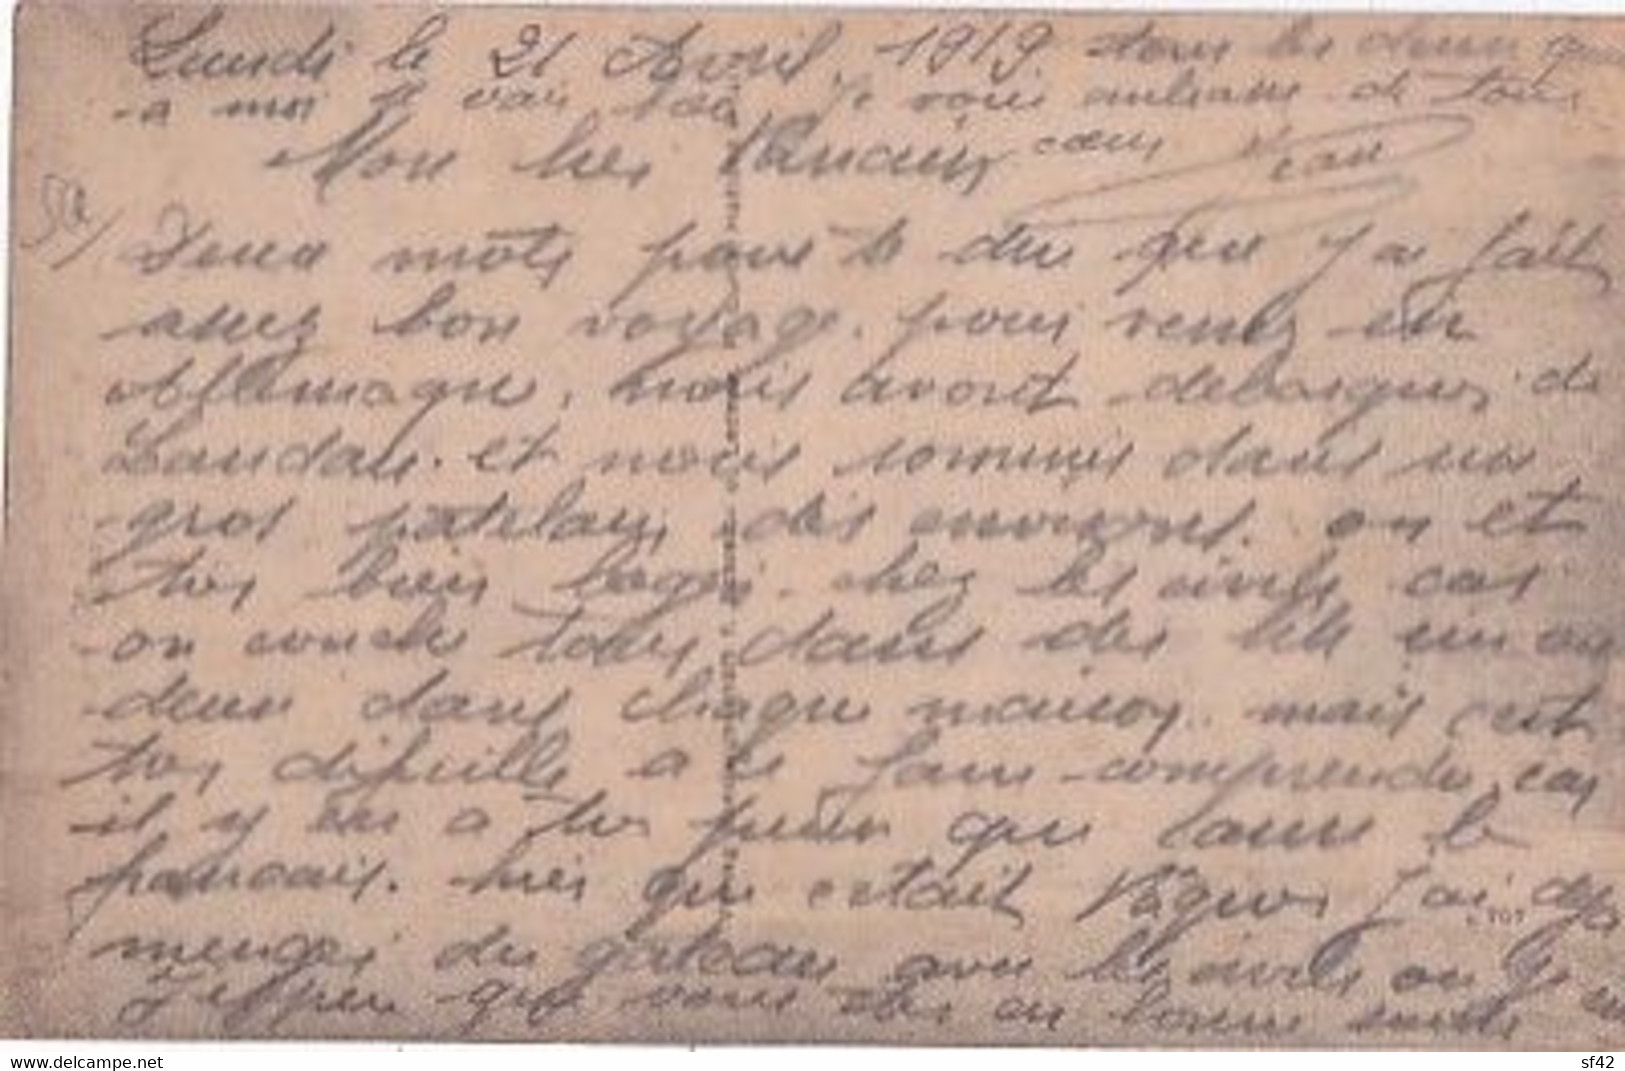 Lundi le 21 Avril 1919 tous les deux
a moi je vous embrasse de tous
Mon cher cœur Jean
Deux mots pour te dir que j'ai fait
assez bon voyage. pour venir en
Allemagne, nous avont debarquer de
Landau. et nous sommes dans un
gros patelain des environs. on et
tres bien loger. chez les civils car
on couche tous dans des lits un ou
deux dans chaque maison. mais c'est
tres difficille a ce faire comprendre, car
il y en a tres peux que cause le
francais. hier que cetait Pâques j'ai deja
menger des gateau avec les civils on
J'espere que vous ete en bonne sante
c 707
delcampe.net
sf42